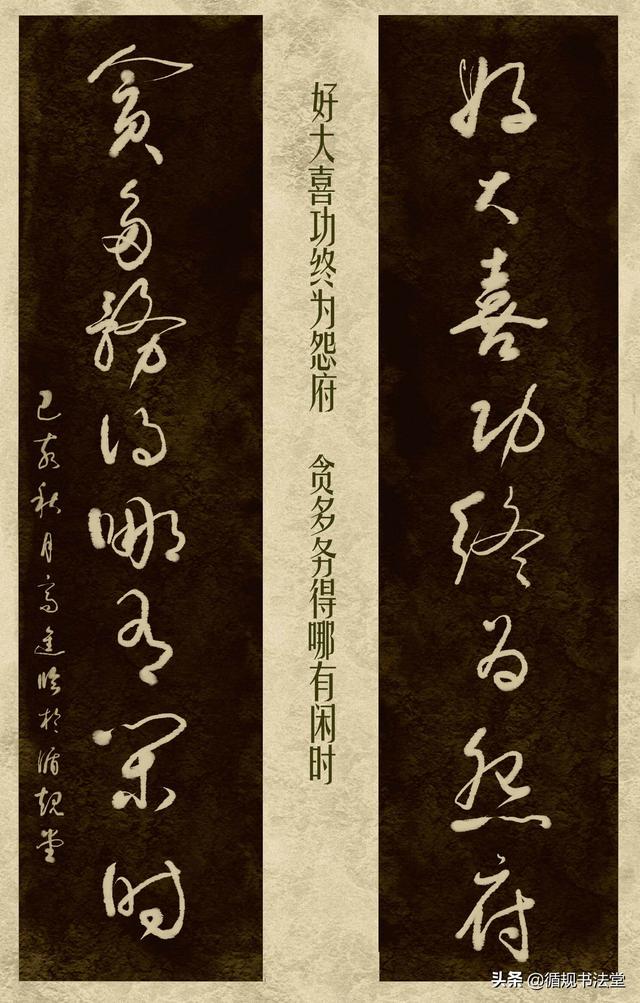 好大喜功终为怨府
贪多務得哪有闲时
己亥秋月高進临於循規堂
好大喜功终为怨府 贪多务得哪有闲时
头条 @循规书法堂